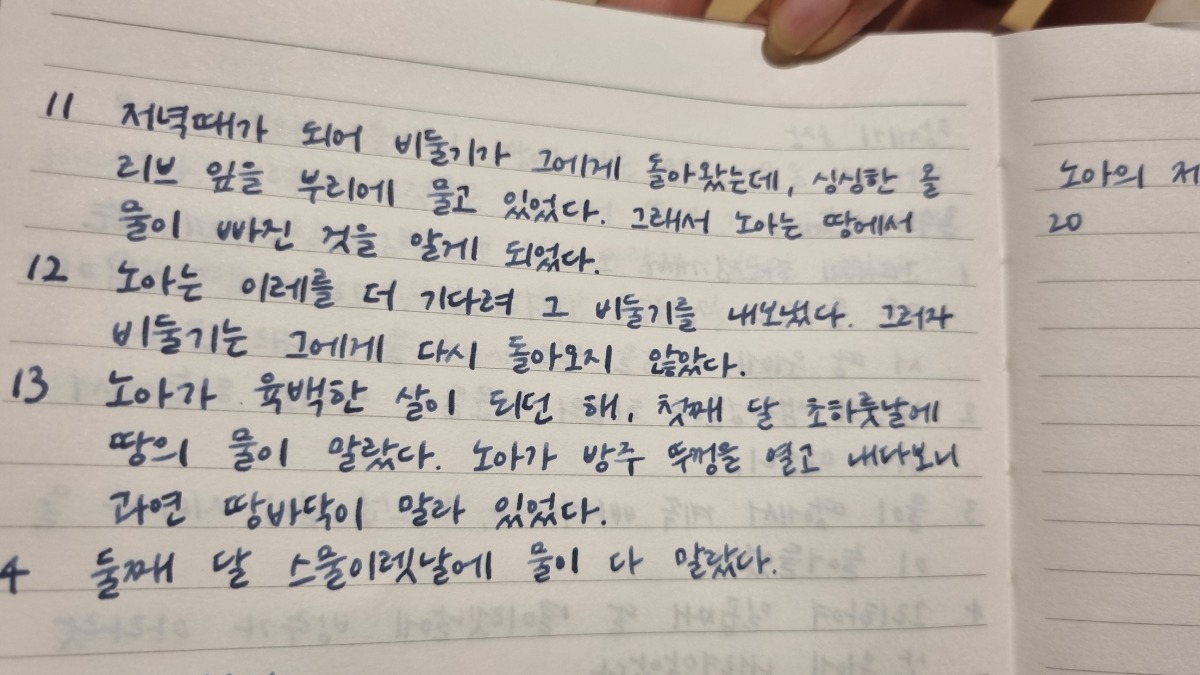 11 저녁때가 되어 비둘기가 그에게 돌아왔는데, 싱싱한 올
리브 잎을 부리에 물고 있었다. 그래서 노아는 땅에서
물이 빠진 것을 알게 되었다.
12 노아는 이레를 더 기다려 그 비둘기를 내보냈다. 그러자
비둘기는 그에게 다시 돌아오지 않았다.
13 노아가 육백한 살이 되던 해, 첫째 달 초하룻날에
땅의 물이 말랐다. 노아가 방주 뚜껑을 열고 내다보니
과연 땅바닥이 말라 있었다.
4 둘째 달 스물이렛날에 물이 다 말랐다.
노아의 제
20